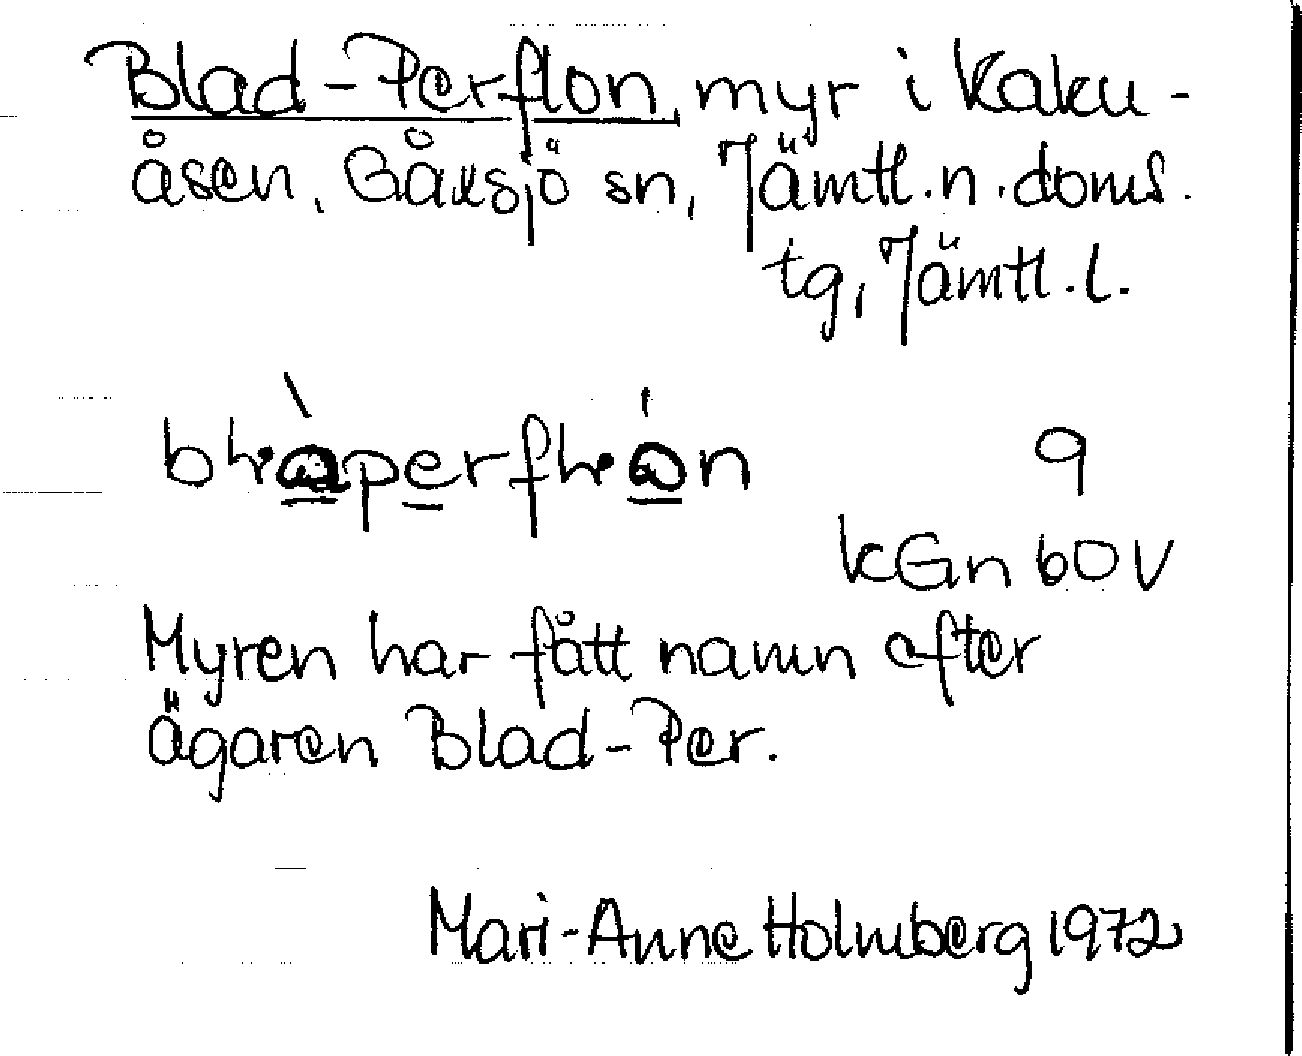 Blad-Perflon, myr i Kaku-
åsen, Gåxsjö sn, Jämtl.n.doms.
tg, Jämtl.l.
9
kGn 60V
Myren har fått namn efter
ägaren Blad-Per.
Mari-Anne Holmberg 1972